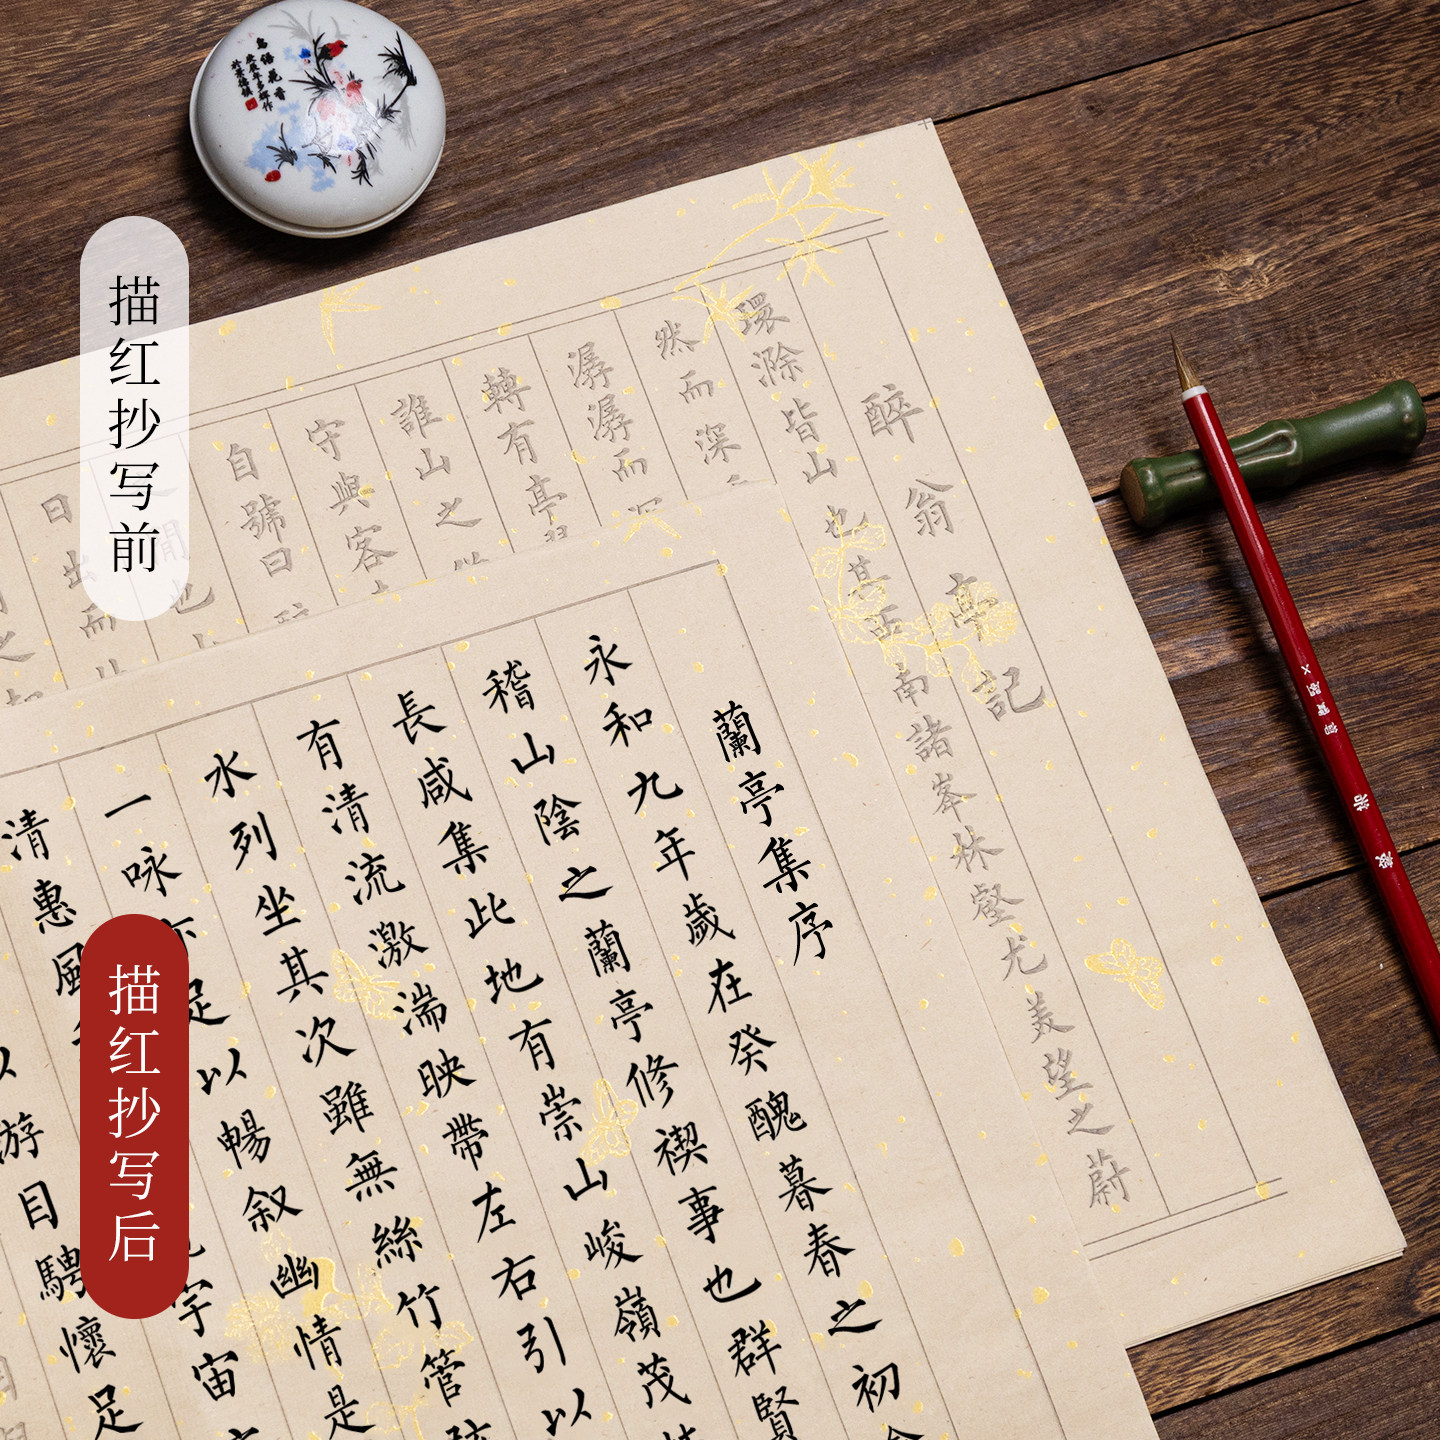 鳥語花香
描红抄写前
醉翁亭記
環滁皆山也其西南諸峯林壑尤美望之蔚
然而深
潺潺而
轉有亭
誰山之
守與客
自號曰
閒也
日出而
描红抄写后
蘭亭集序
永和九年歲在癸醜暮春之初
稽山陰之蘭亭修禊事也群賢
長咸集此地有崇山峻嶺茂
有清流激湍映帶左右引以
水列坐其次雖無絲竹管
一咏亦足以暢叙幽情是
清惠風宇宙
以游目騁懷足
御寶閣